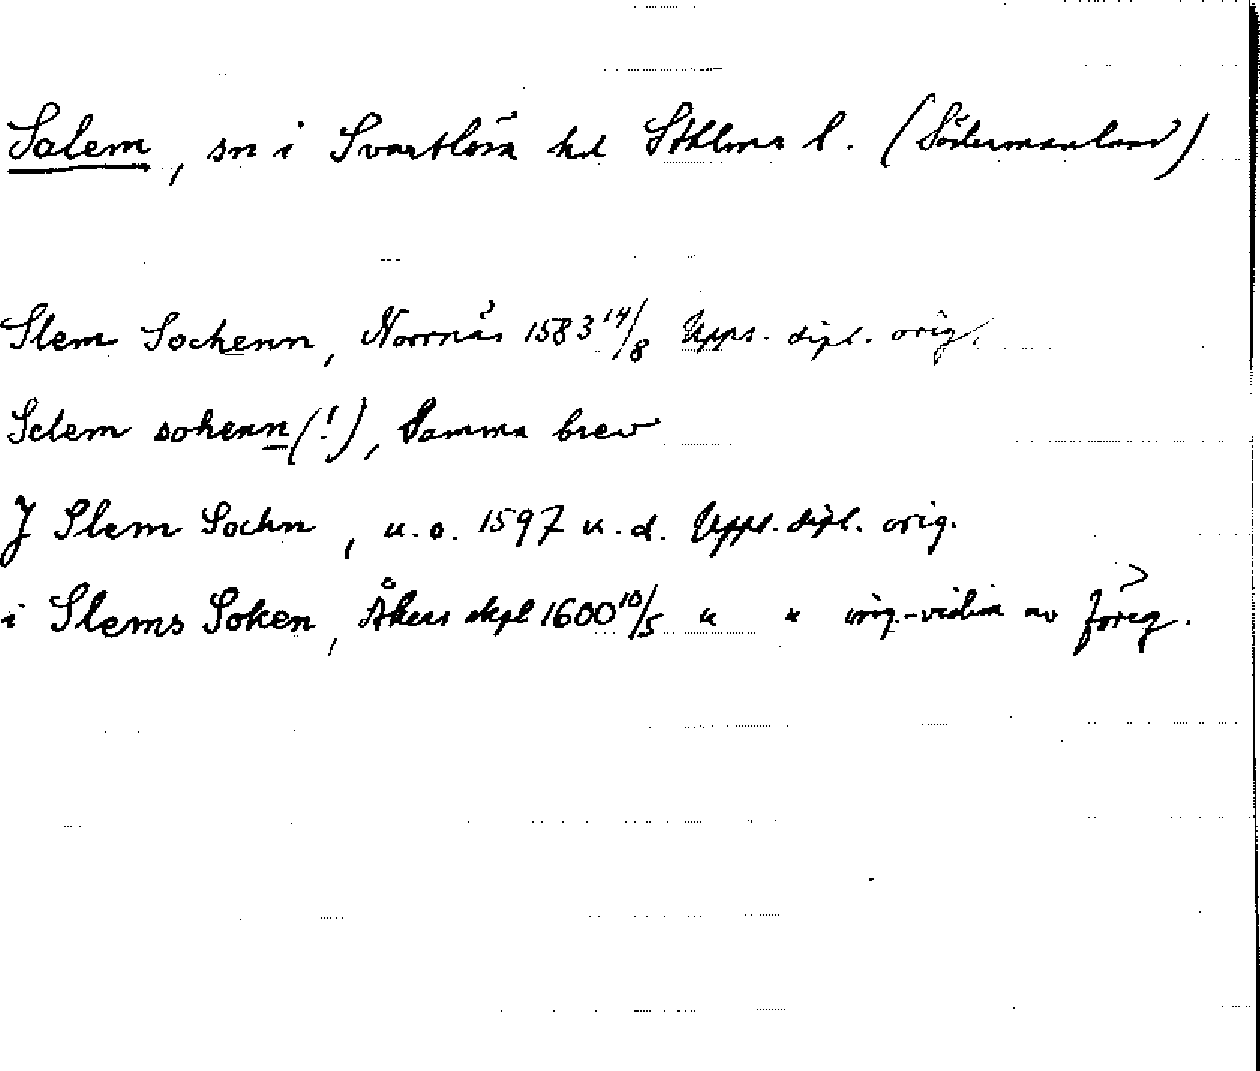 Salem, sn i Svartlösa hd Sthlms l. (Södermanland)
Slem Sochenn, Norrnäs 1583 14/8 Upps. dipl. orig.
Selem sokenn(!), Samma brev
J Slem Sochn, u.o. 1597 u.d. Upps. dipl. orig.
i Slems Soken, Åkers skpl 1600 10/5 " " orig.-vidim av föreg.